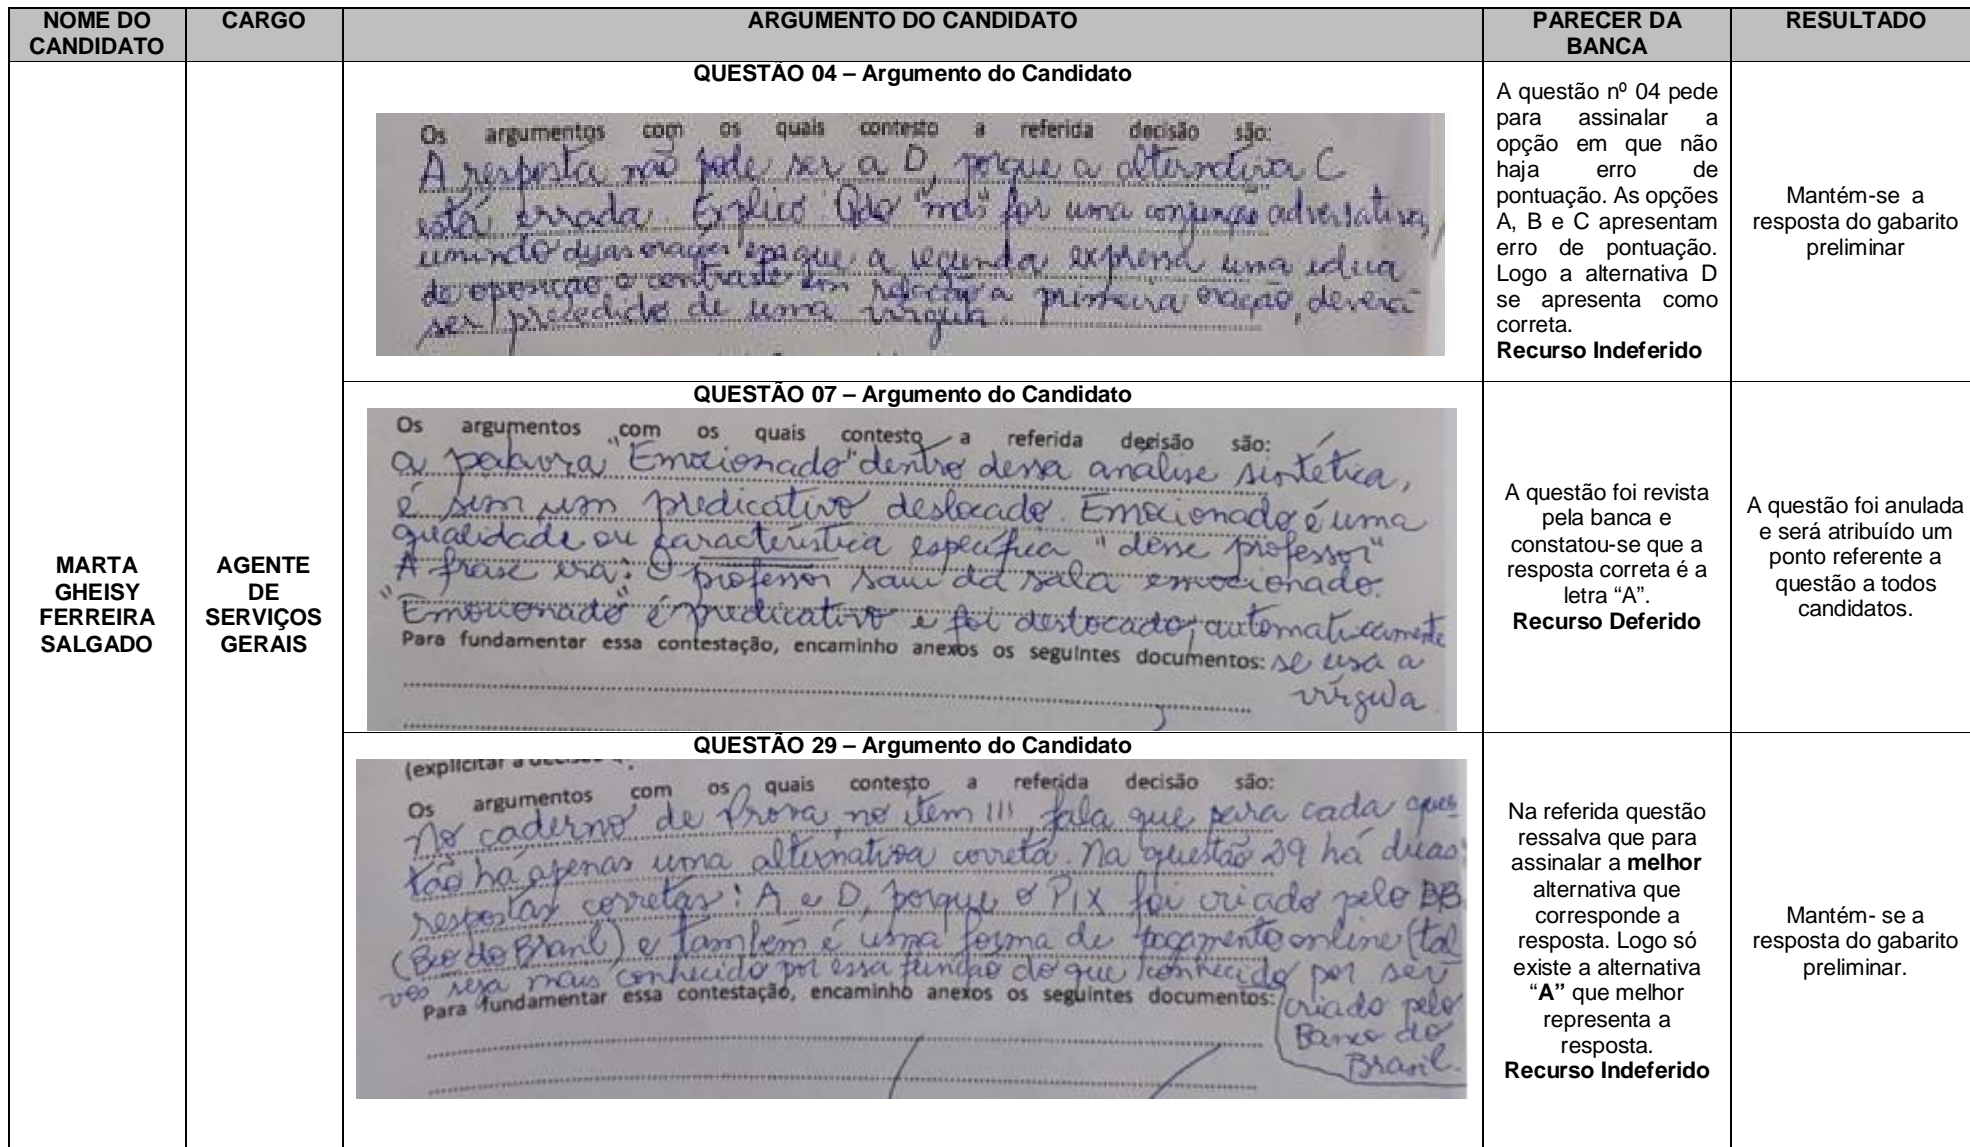 NOME DO
CANDIDATO
CARGO
ARGUMENTO DO CANDIDATO
PARECER DA
BANCA
RESULTADO
MARTA
GHEISY
FERREIRA
SALGADO
AGENTE
DE
SERVIÇOS
GERAIS
QUESTÃO 04 – Argumento do Candidato
Os argumentos com os quais contesto a referida decisão são:
A resposta não pode ser a D, porque a alternativa C
está errada. Explico: Qdo "mas" for uma conjunção adversativa,
unindo duas orações em que a segunda expressa uma ideia
de oposição o contraste em relação a primeira oração, deverá
ser precedido de uma vírgula.
A questão nº 04 pede
para assinalar a
opção em que não
haja erro de
pontuação. As opções
A, B e C apresentam
erro de pontuação.
Logo a alternativa D
se apresenta como
correta.
Recurso Indeferido
Mantém-se a
resposta do gabarito
preliminar
QUESTÃO 07 – Argumento do Candidato
Os argumentos com os quais contesto a referida decisão são:
a palavra "Emocionado" dentro dessa análise sintética,
é sim um predicativo deslocado. Emocionado é uma
qualidade ou característica específica "desse professor"
A frase era: O professor saiu da sala emocionado.
"Emocionado" é predicativo e foi deslocado, automaticamente
Para fundamentar essa contestação, encaminho anexos os seguintes documentos: se usa a
vírgula.
A questão foi revista
pela banca e
constatou-se que a
resposta correta é a
letra “A”.
Recurso Deferido
A questão foi anulada
e será atribuído um
ponto referente a
questão a todos
candidatos.
QUESTÃO 29 – Argumento do Candidato
(explicitar a
Os argumentos com os quais contesto a referida decisão são:
No caderno de Prova, no item III, fala que para cada ques
tão há apenas uma alternativa correta. Na questão 29 há duas
respostas corretas: A e D, porque o PIX foi criado pelo BB
(Bco do Brasil) e também é uma forma de pagamento online (tal
vês seja mais conhecido por essa função do que conhecido por ser
Para fundamentar essa contestação, encaminho anexos os seguintes documentos: criado pelo
Banco do
Brasil.
Na referida questão
ressalva que para
assinalar a melhor
alternativa que
corresponde a
resposta. Logo só
existe a alternativa
“A” que melhor
representa a
resposta.
Recurso Indeferido
Mantém- se a
resposta do gabarito
preliminar.